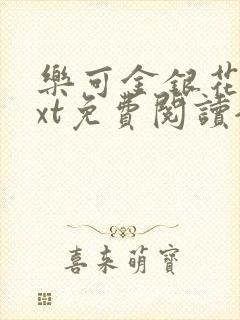 樂可金銀花
xt免費閱讀
喜來萌寶